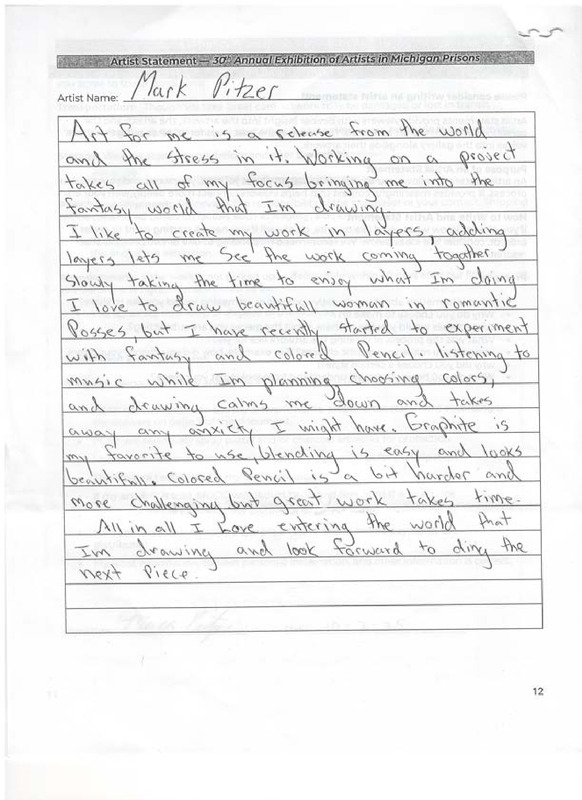 Artist Statement — 30th Annual Exhibition of Artists in Michigan Prisons
Artist Name: Mark Pitzer
Art for me is a release from the world
and the stress in it. Working on a project
takes all of my focus bringing me into the
fantasy world that Im drawing.
I like to create my work in layers, adding
layers lets me see the work coming together.
Slowly taking the time to enjoy what Im doing
I love to draw beautifull woman in romantic
Posses, but I have recently started to experiment
with fantasy and colored Pencil. listening to
music while Im planning, choosing colors,
and drawing calms me down and takes
away any anxiety I might have. Graphite is
my favorite to use, blending is easy and looks
beautifull. Colored Pencil is a bit harder and
more challenging but great work takes time.
All in all I love entering the world that
Im drawing and look forward to ding the
next Piece.
12